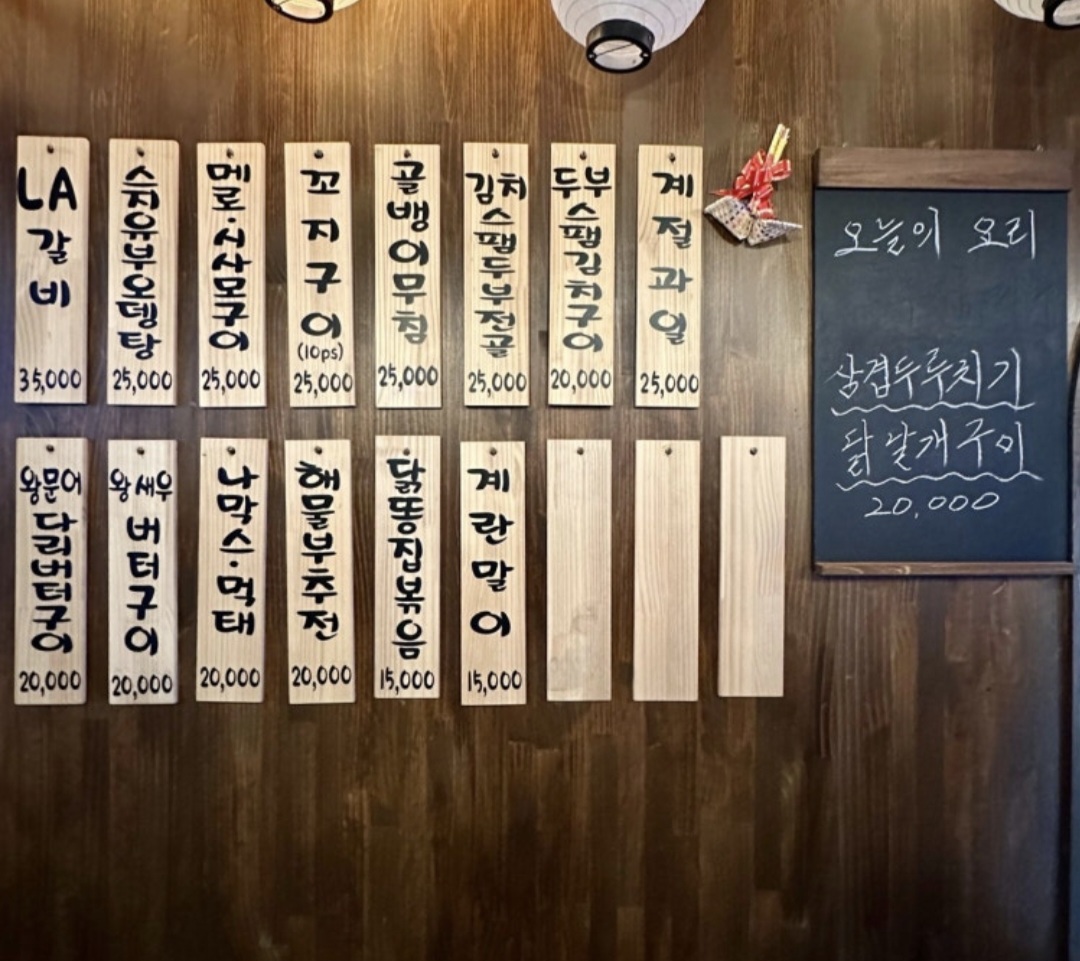 LA갈비
35,000
스지유부오뎅탕
25,000
메로·시사모구이
25,000
꼬지구이
(10ps)
25,000
골뱅이무침
25,000
김치스팸두부전골
25,000
두부스팸김치구이
20,000
계절과일
25,000
왕문어다리버터구이
20,000
왕새우버터구이
20,000
나막스·먹태
20,000
해물부추전
20,000
닭똥집볶음
15,000
계란말이
15,000
오늘의 요리
삼겹두루치기
닭날개구이
20,000